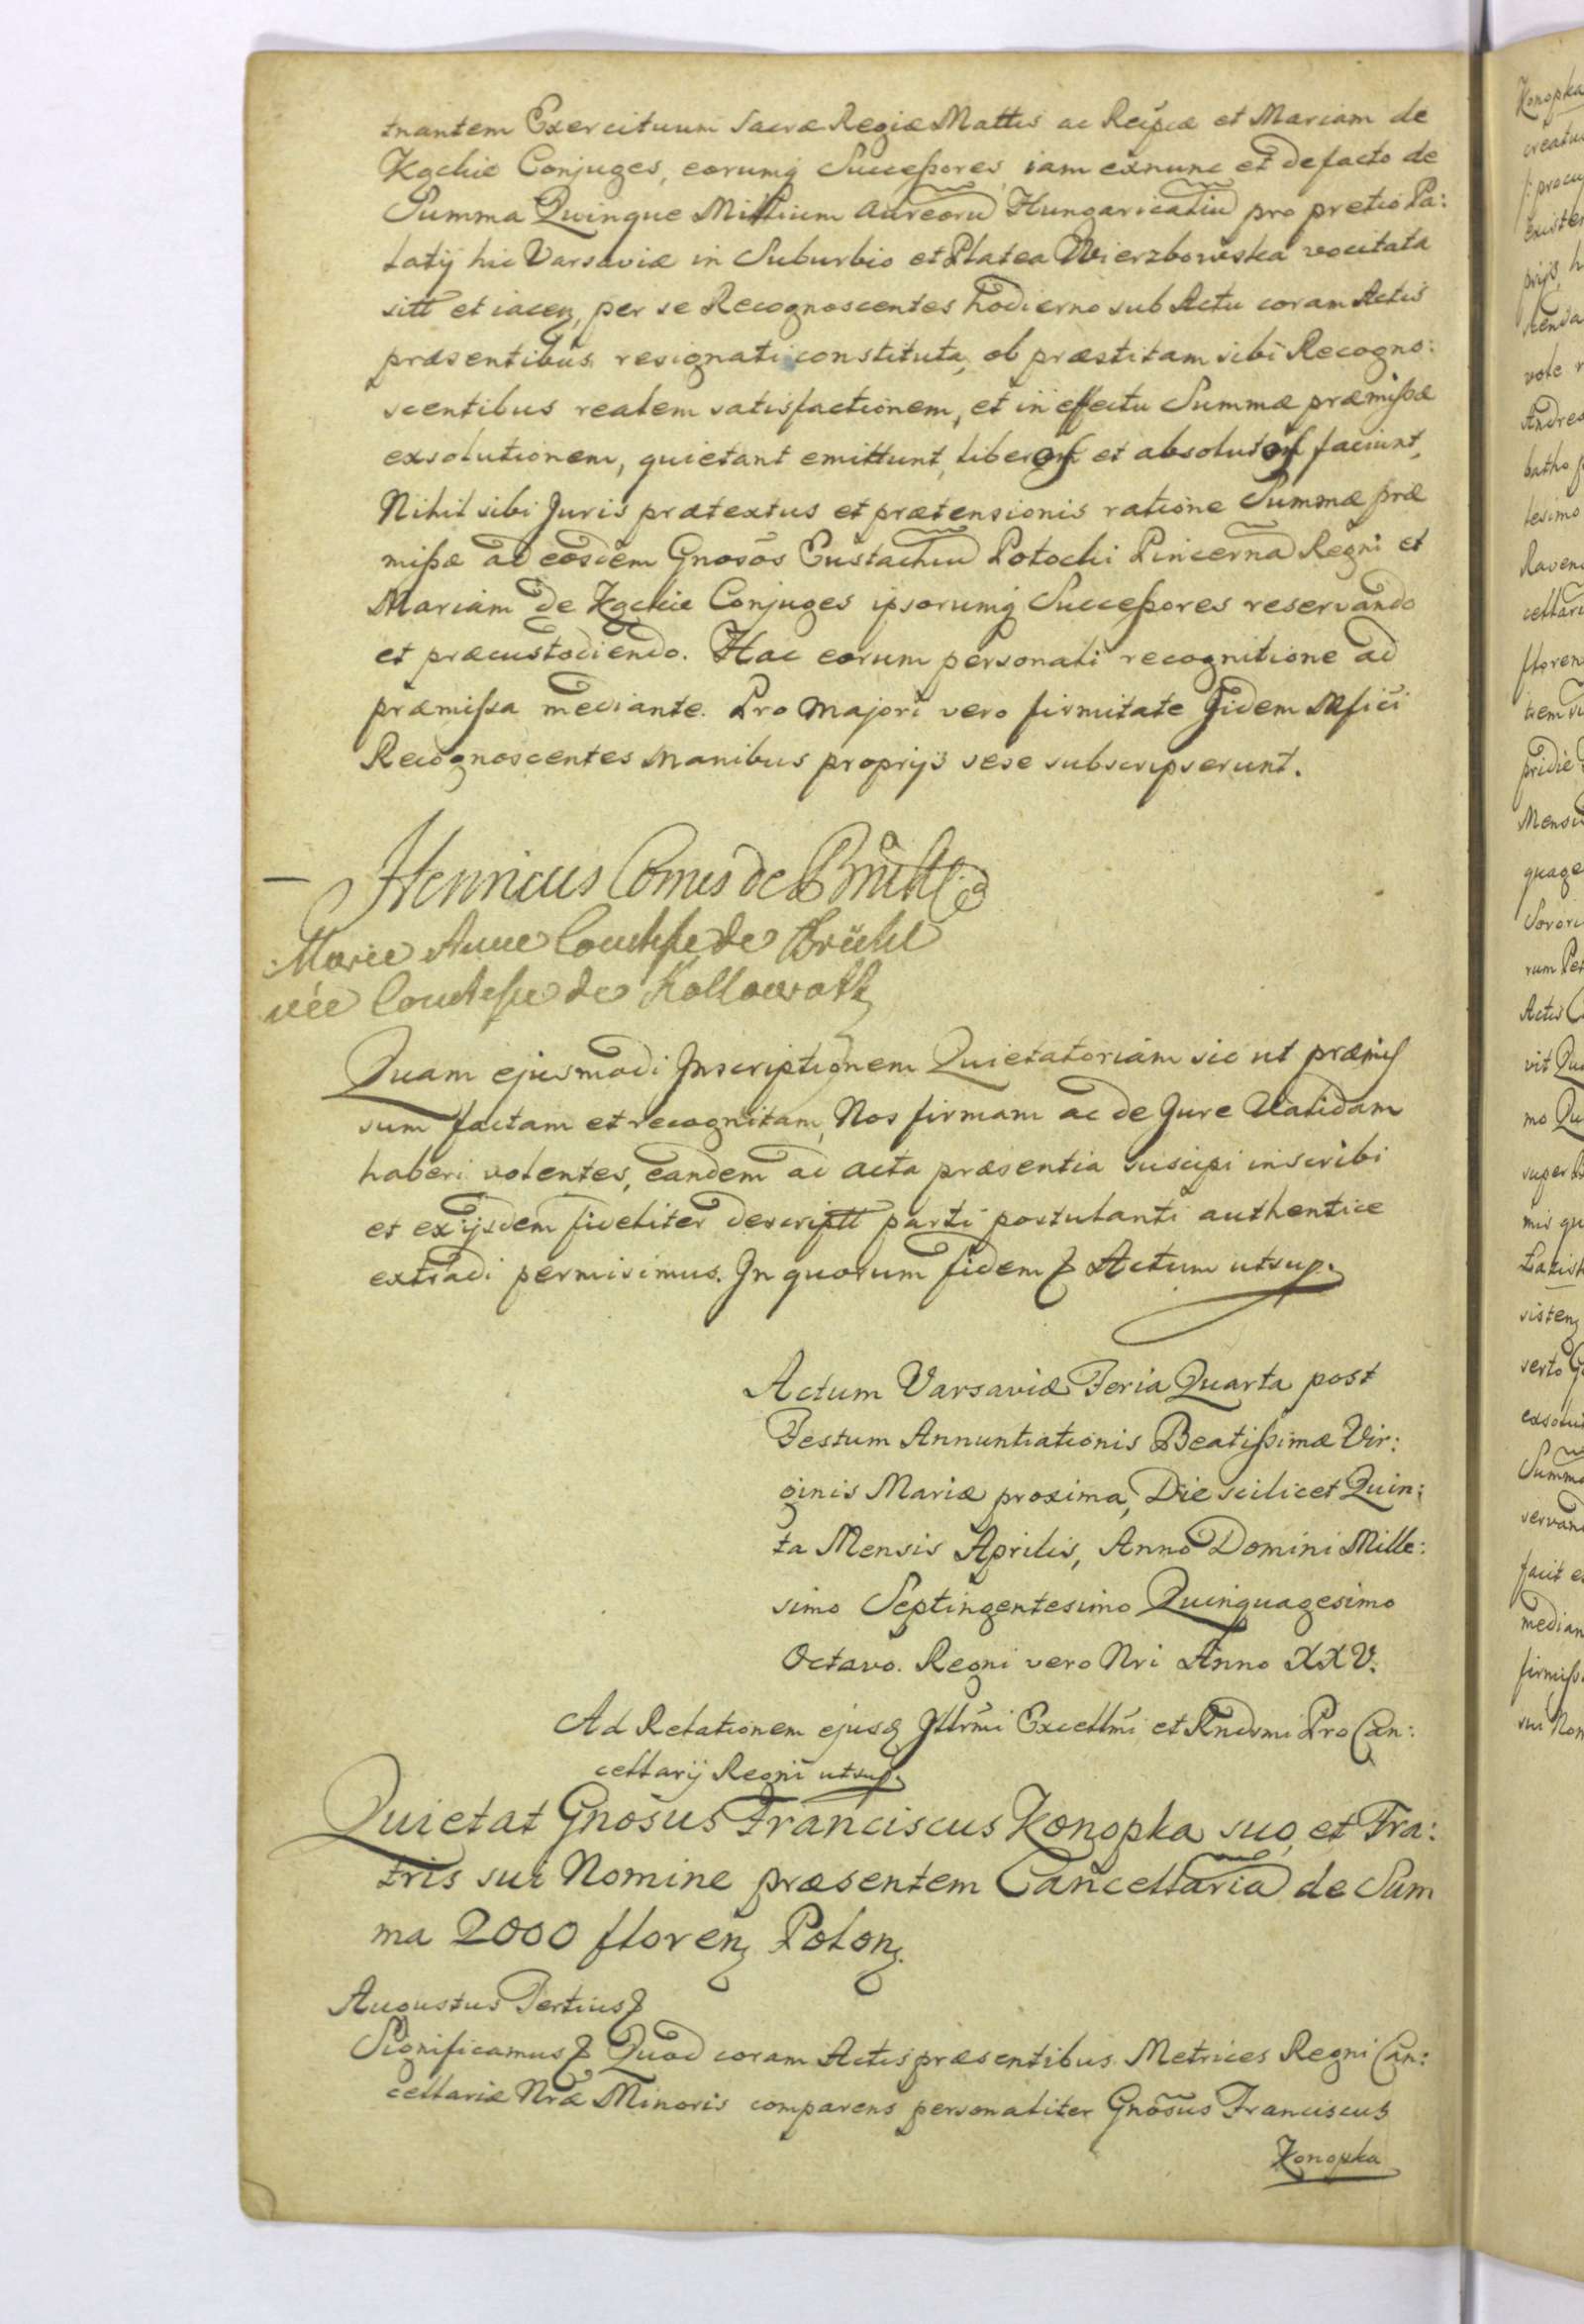 tnantem Exercituum Sacræ Regiæ Mattis ac Reipcæ et Mariam de
Kąckie Conjuges, eorumq Successores, iam exnunc et defacto de
Summa Quinque Millium Aureorū Hungaricaliū pro pretio Pa:
latij hic Varsaviæ in Suburbio et Platea Wierzbowska vocitata
sitt et iacen, per se Recognoscentes hodierno sub Actu coram Actis
præsentibus resignati constituta, ob præstitam sibi Recogno:
scentibus realem satisfactionem, et in effectu Summæ præmissæ
exsolutionem, quietant emittunt, liberos et absolutos faciunt,
Nihil sibi Juris prætextus et prætensionis ratione Summæ præ
missæ ad eosdem Gnosos Eustachiū Potocki Pincernā Regni et
Mariam de Kąckie Conjuges ipsorumq Successores reservando
et præcustodiendo. Hac eorum personali recognitione ad
præmissa mediante. Pro majori vero firmitate Jidem Mfici
Recognoscentes manibus proprijs sese subscripserunt.
Henricus Comes de Brühl
Marie Anne Comtesse de Brühl
née Comtesse de Kollowrath
Quam ejusmodi Inscriptionem Quietatoriam sic ut præmis
sum factam et recognitam, Nos firmam ac de Jure Validam
haberi volentes, eandem ad acta præsentia suscipi inscribi
et ex ijsdem fideliter descriptt parti postulanti authentice
extradi permisimus. In quorum fidem & Actum utsup.
Actum Varsaviæ Feria Quarta post
Festum Annuntiationis Beatissimæ Vir:
ginis Mariæ proxima, Die scilicet Quin:
ta Mensis Aprilis, Anno Domini Mille:
simo Septingentesimo Quinquagesimo
Octavo. Regni vero Nri Anno XXV.
Ad Relationem ejusd Jllrmi Excellmi et Rndsmi ProCan:
cellarij Regni utsup.
Quietat Gnosus Franciscus Konopka suo, et Fra:
tris sui Nomine præsentem Cancellariā de Sum
ma 2000 floren Polon.
Augustus Tertius &
Significamus & Quod coram Actis præsentibus Metrices Regni Can:
cellariæ Nræ Minoris comparens personaliter Gnosus Franciscus
Konopka